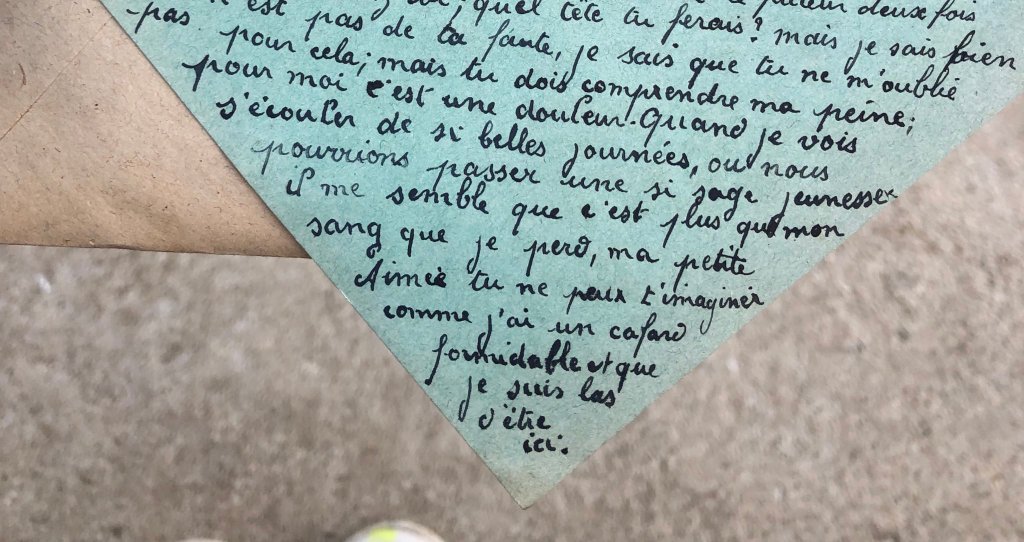 facteur deux fois
n'est pas de ta faute, quel tête tu ferais? mais je sais bien
pas
pour cela; mais tu dois comprendre ma peine;
je sais que tu ne m'oublie
pour moi c'est une douleur. Quand je vois
s'écouler de si belles journées, ou nous
pourrions passer une si sage jeunesse
il me semble que c'est plus que mon
sang que je perd, ma petite
Aimée tu ne peux t'imaginer
comme j'ai un cafard
formidable et que
je suis las
d'être
ici.